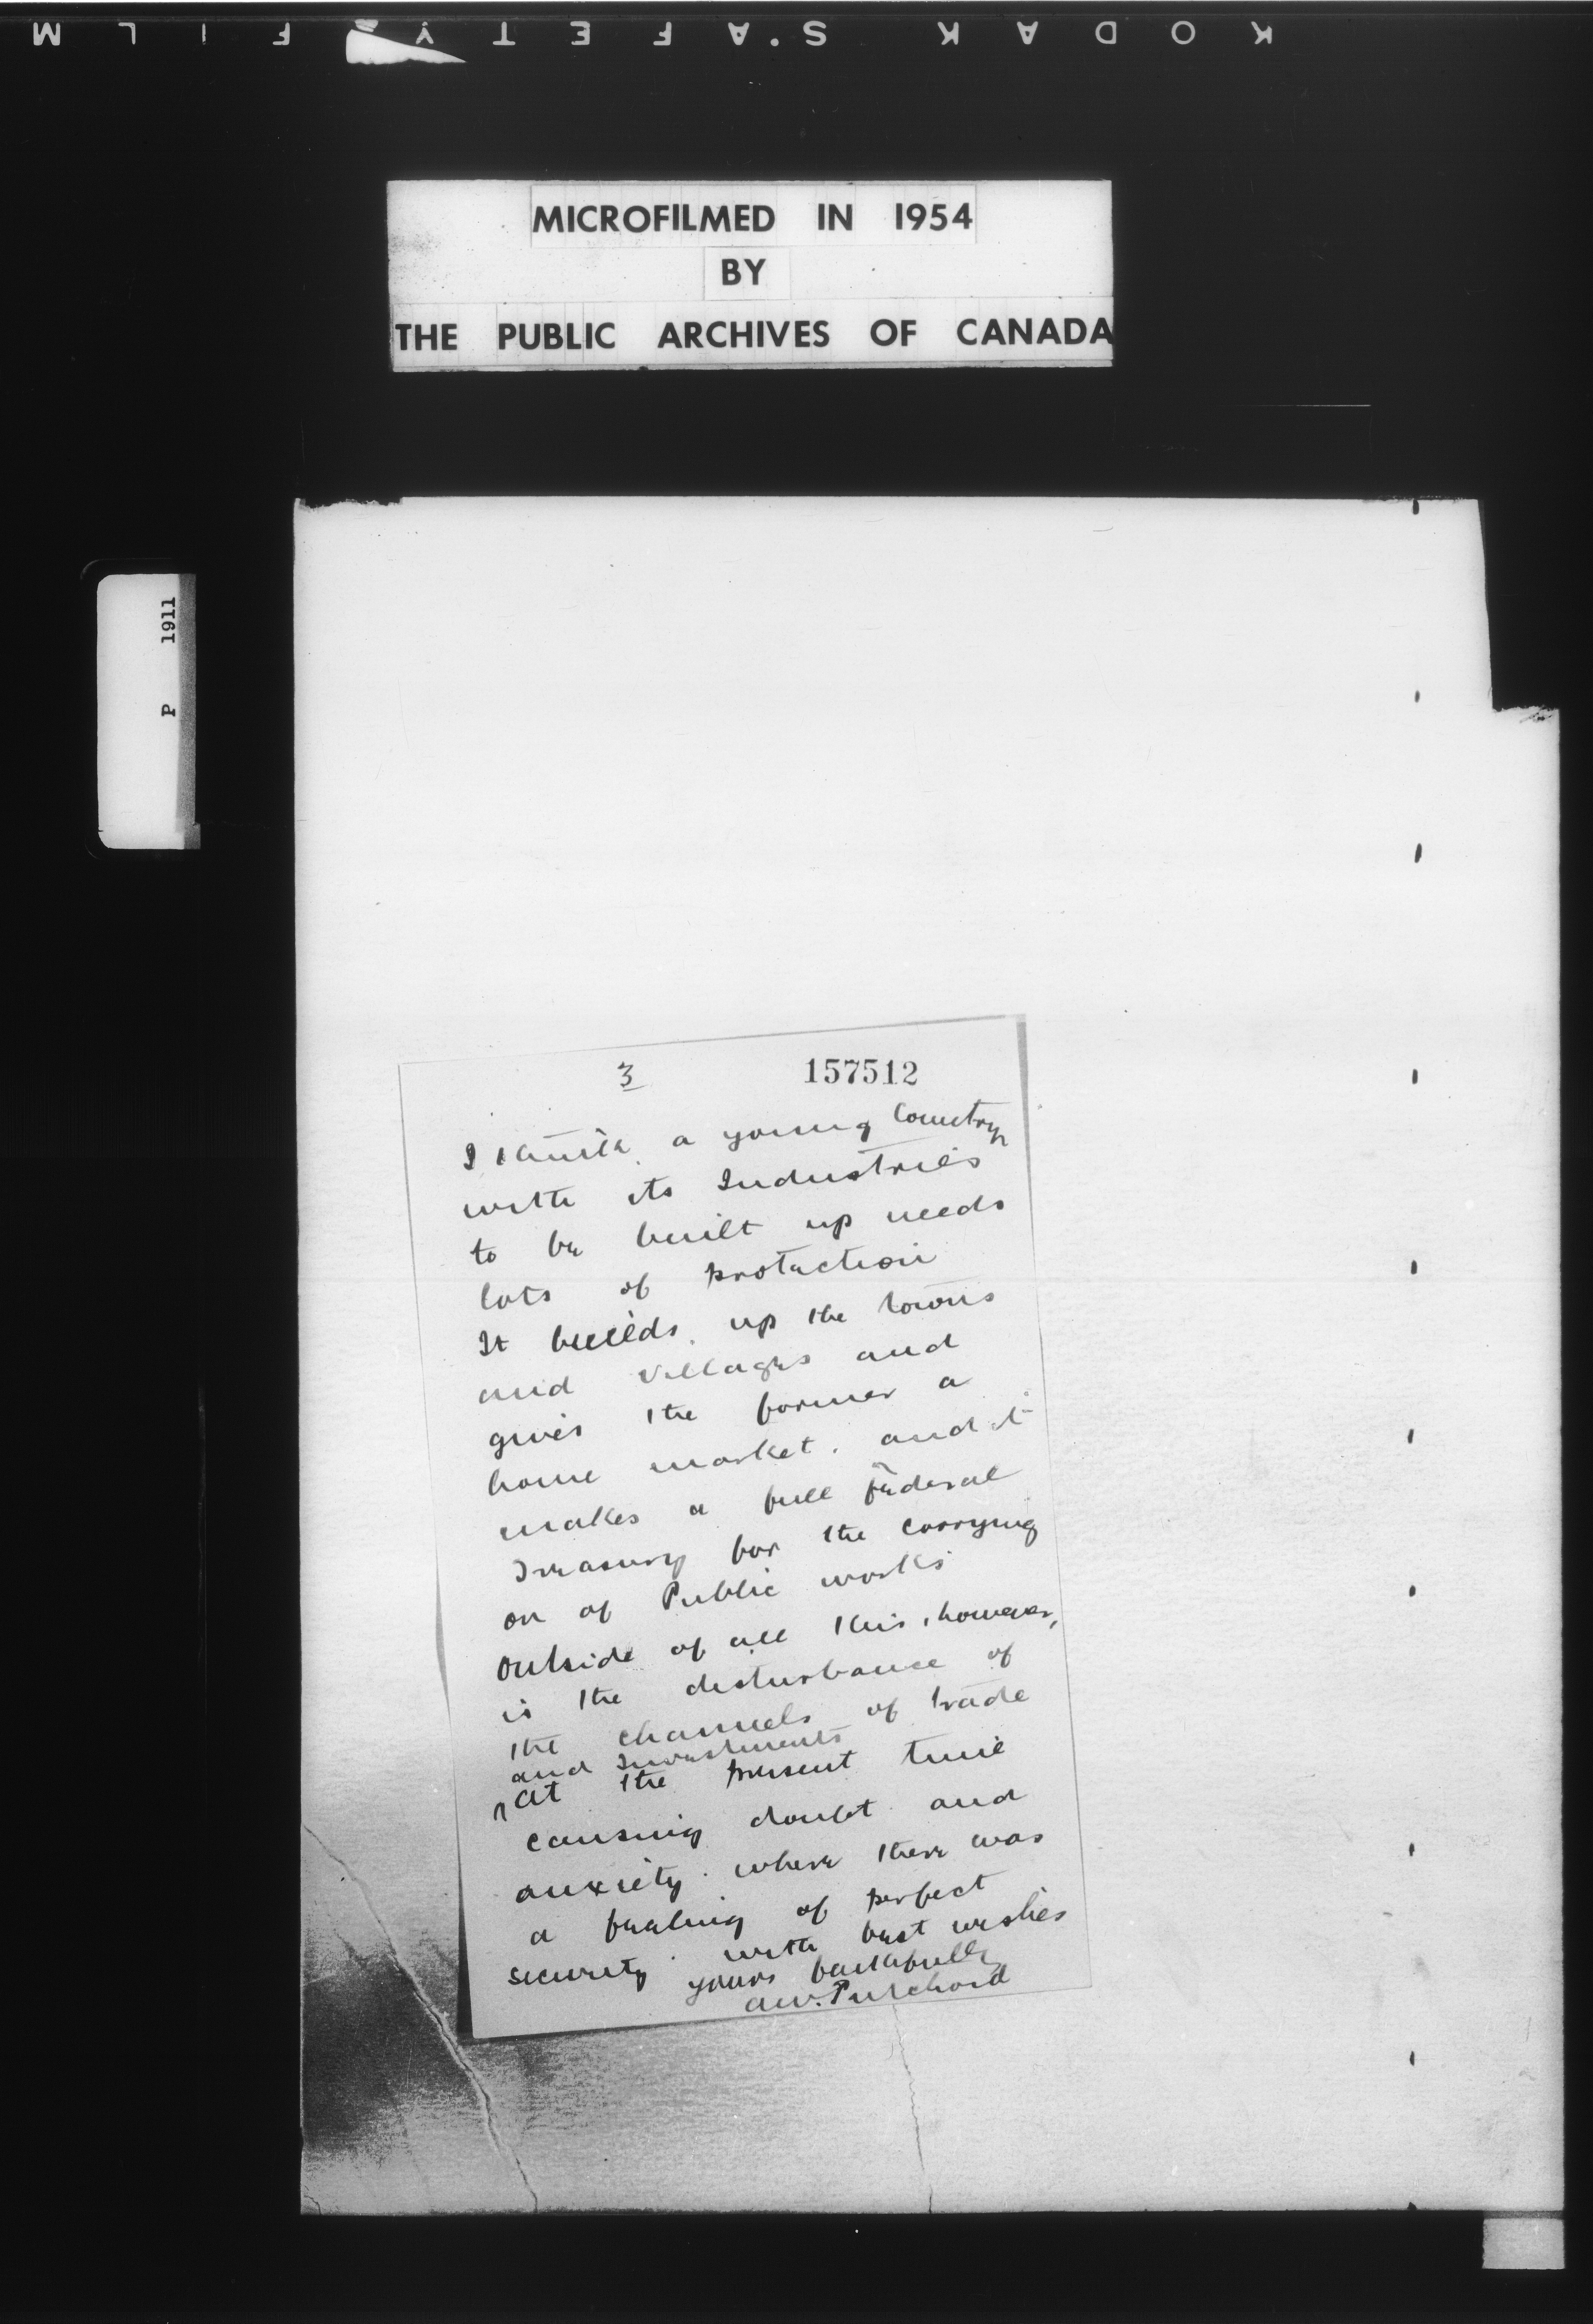 KODAK SAFETY FILM
MICROFILMED IN 1954
BY
THE PUBLIC ARCHIVES OF CANADA
P 1911
3 157512
I think a young Country
with its Industries
to be built up needs
lots of protection
It builds up the towns
and villages and
gives the farmer a
home market. and it
makes a full federal
Treasury for the carrying
on of Public works
outside of all this, however,
is the disturbance of
the channels of trade
and Investments
at the present time
causing doubt and
anxiety where there was
a feeling of perfect
security. with best wishes
yours faithfully
A.W. Puschard